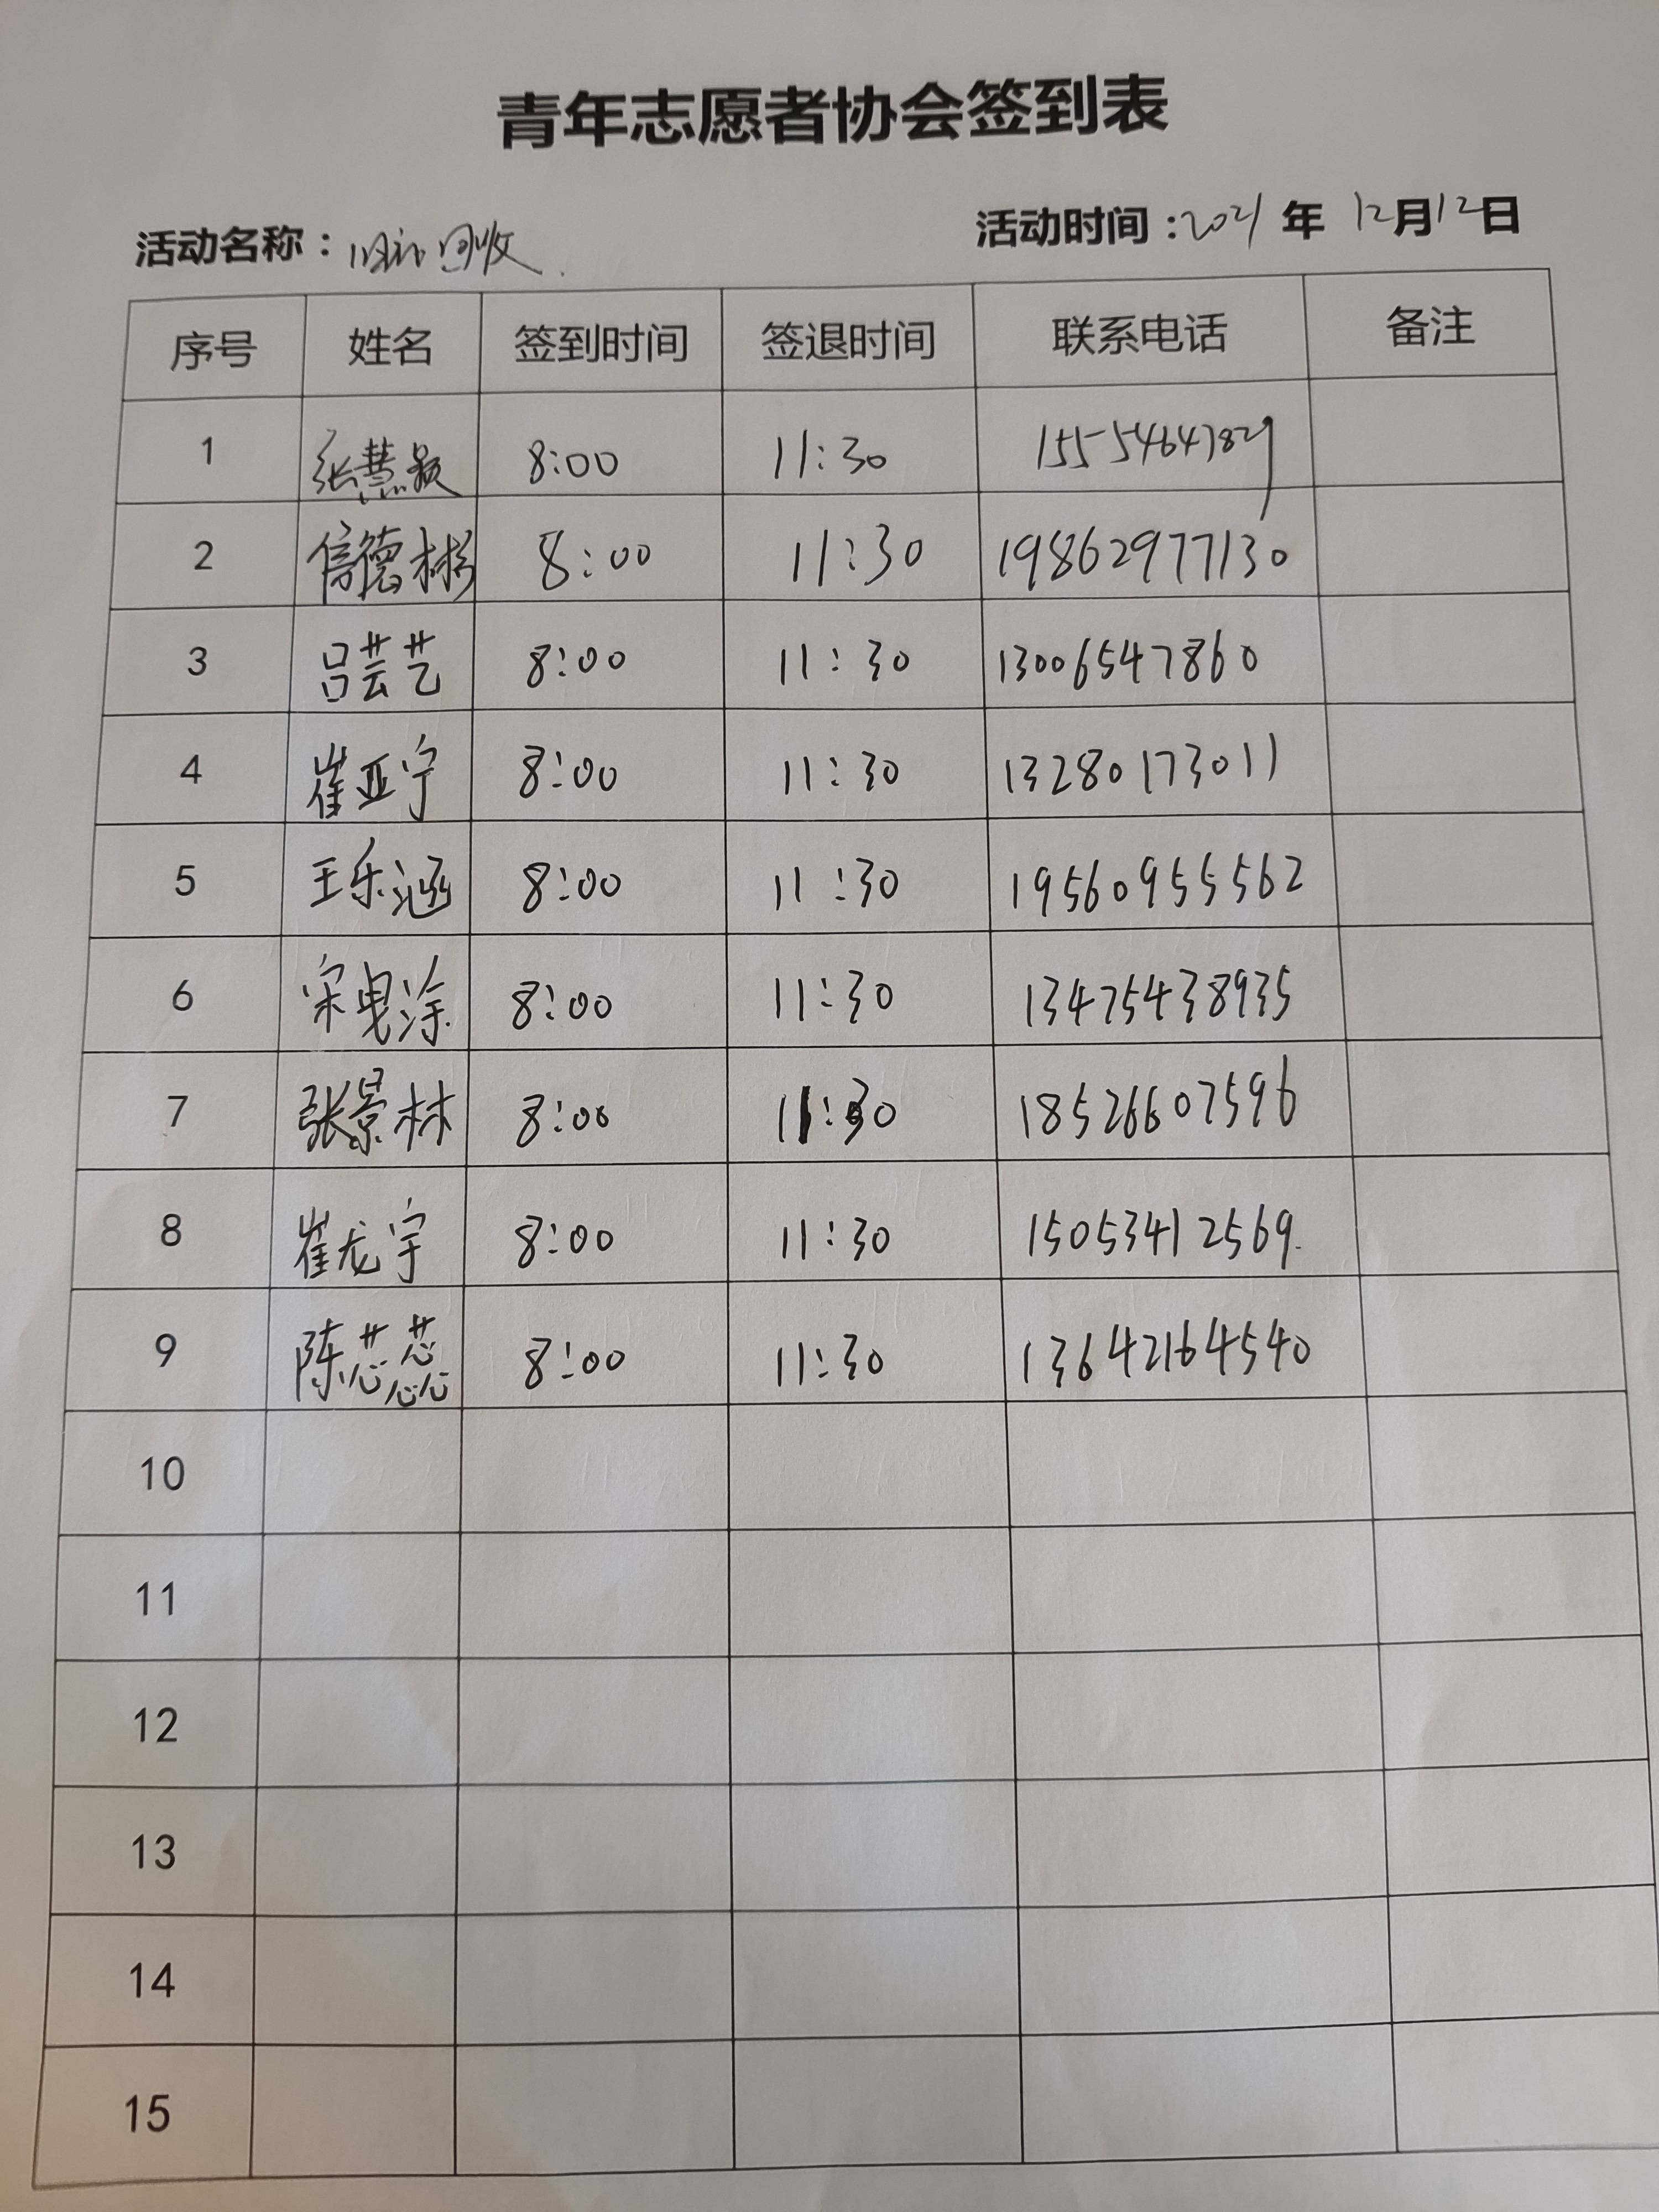 青年志愿者协会签到表
活动名称：旧衣回收 活动时间：2021年 12月12日
序号 姓名 签到时间 签退时间 联系电话 备注
1 张慧颖 8:00 11:30 15554647829
2 信德彬 8:00 11:30 19862977130
3 吕芸艺 8:00 11:30 13006547860
4 崔亚宁 8:00 11:30 13280173011
5 王乐涵 8:00 11:30 19560955562
6 宋曳涂 8:00 11:30 13475438935
7 张景林 8:00 11:30 18526607596
8 崔龙宇 8:00 11:30 15053412569
9 陈芯蕊 8:00 11:30 13642164540
10
11
12
13
14
15